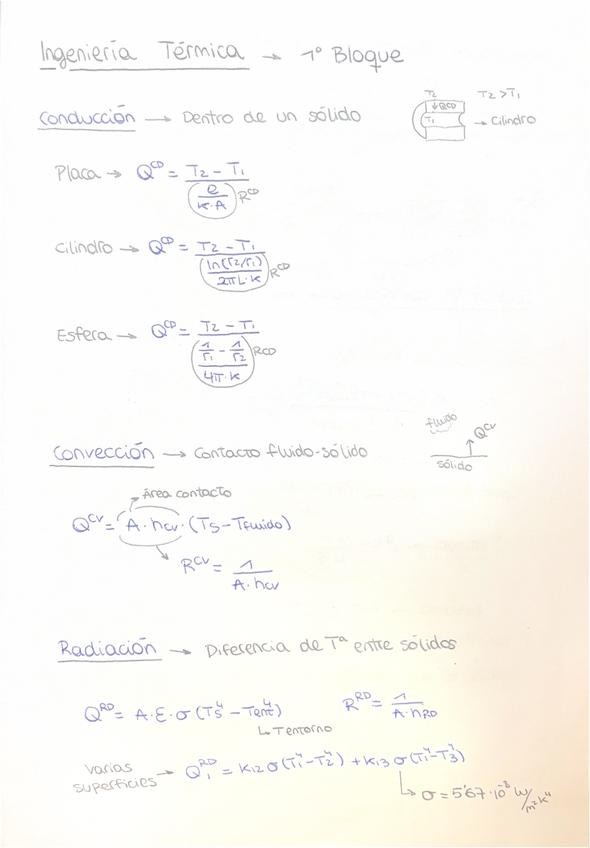 Ingeniería Térmica → 1º Bloque
Conducción → Dentro de un sólido
T2 T2 > T1
↓ QCD
T1 → Cilindro
Placa → Q^CD = (T2 - T1) / (e / (K·A)) R^CD
Cilindro → Q^CD = (T2 - T1) / (ln(r2/r1) / (2πL·K)) R^CD
Esfera → Q^CD = (T2 - T1) / ((1/r1 - 1/r2) / (4π·K)) RCD
Convección → Contacto fluido-sólido
fluido
Q^CV
sólido
→ Área contacto
Q^CV = A·hcv·(Ts - Tfluido)
→ R^CV = 1 / (A·hcv)
Radiación → Diferencia de Tª entre sólidos
Q^RD = A·ε·σ(Ts^4 - Tent^4) R^RD = 1 / (A·hRD)
↳ T entorno
varias superficies → Q1^RD = K12 σ(T1^4 - T2^4) + K13 σ(T1^4 - T3^4)
↳ σ = 5'67·10^-8 W/m²K^4